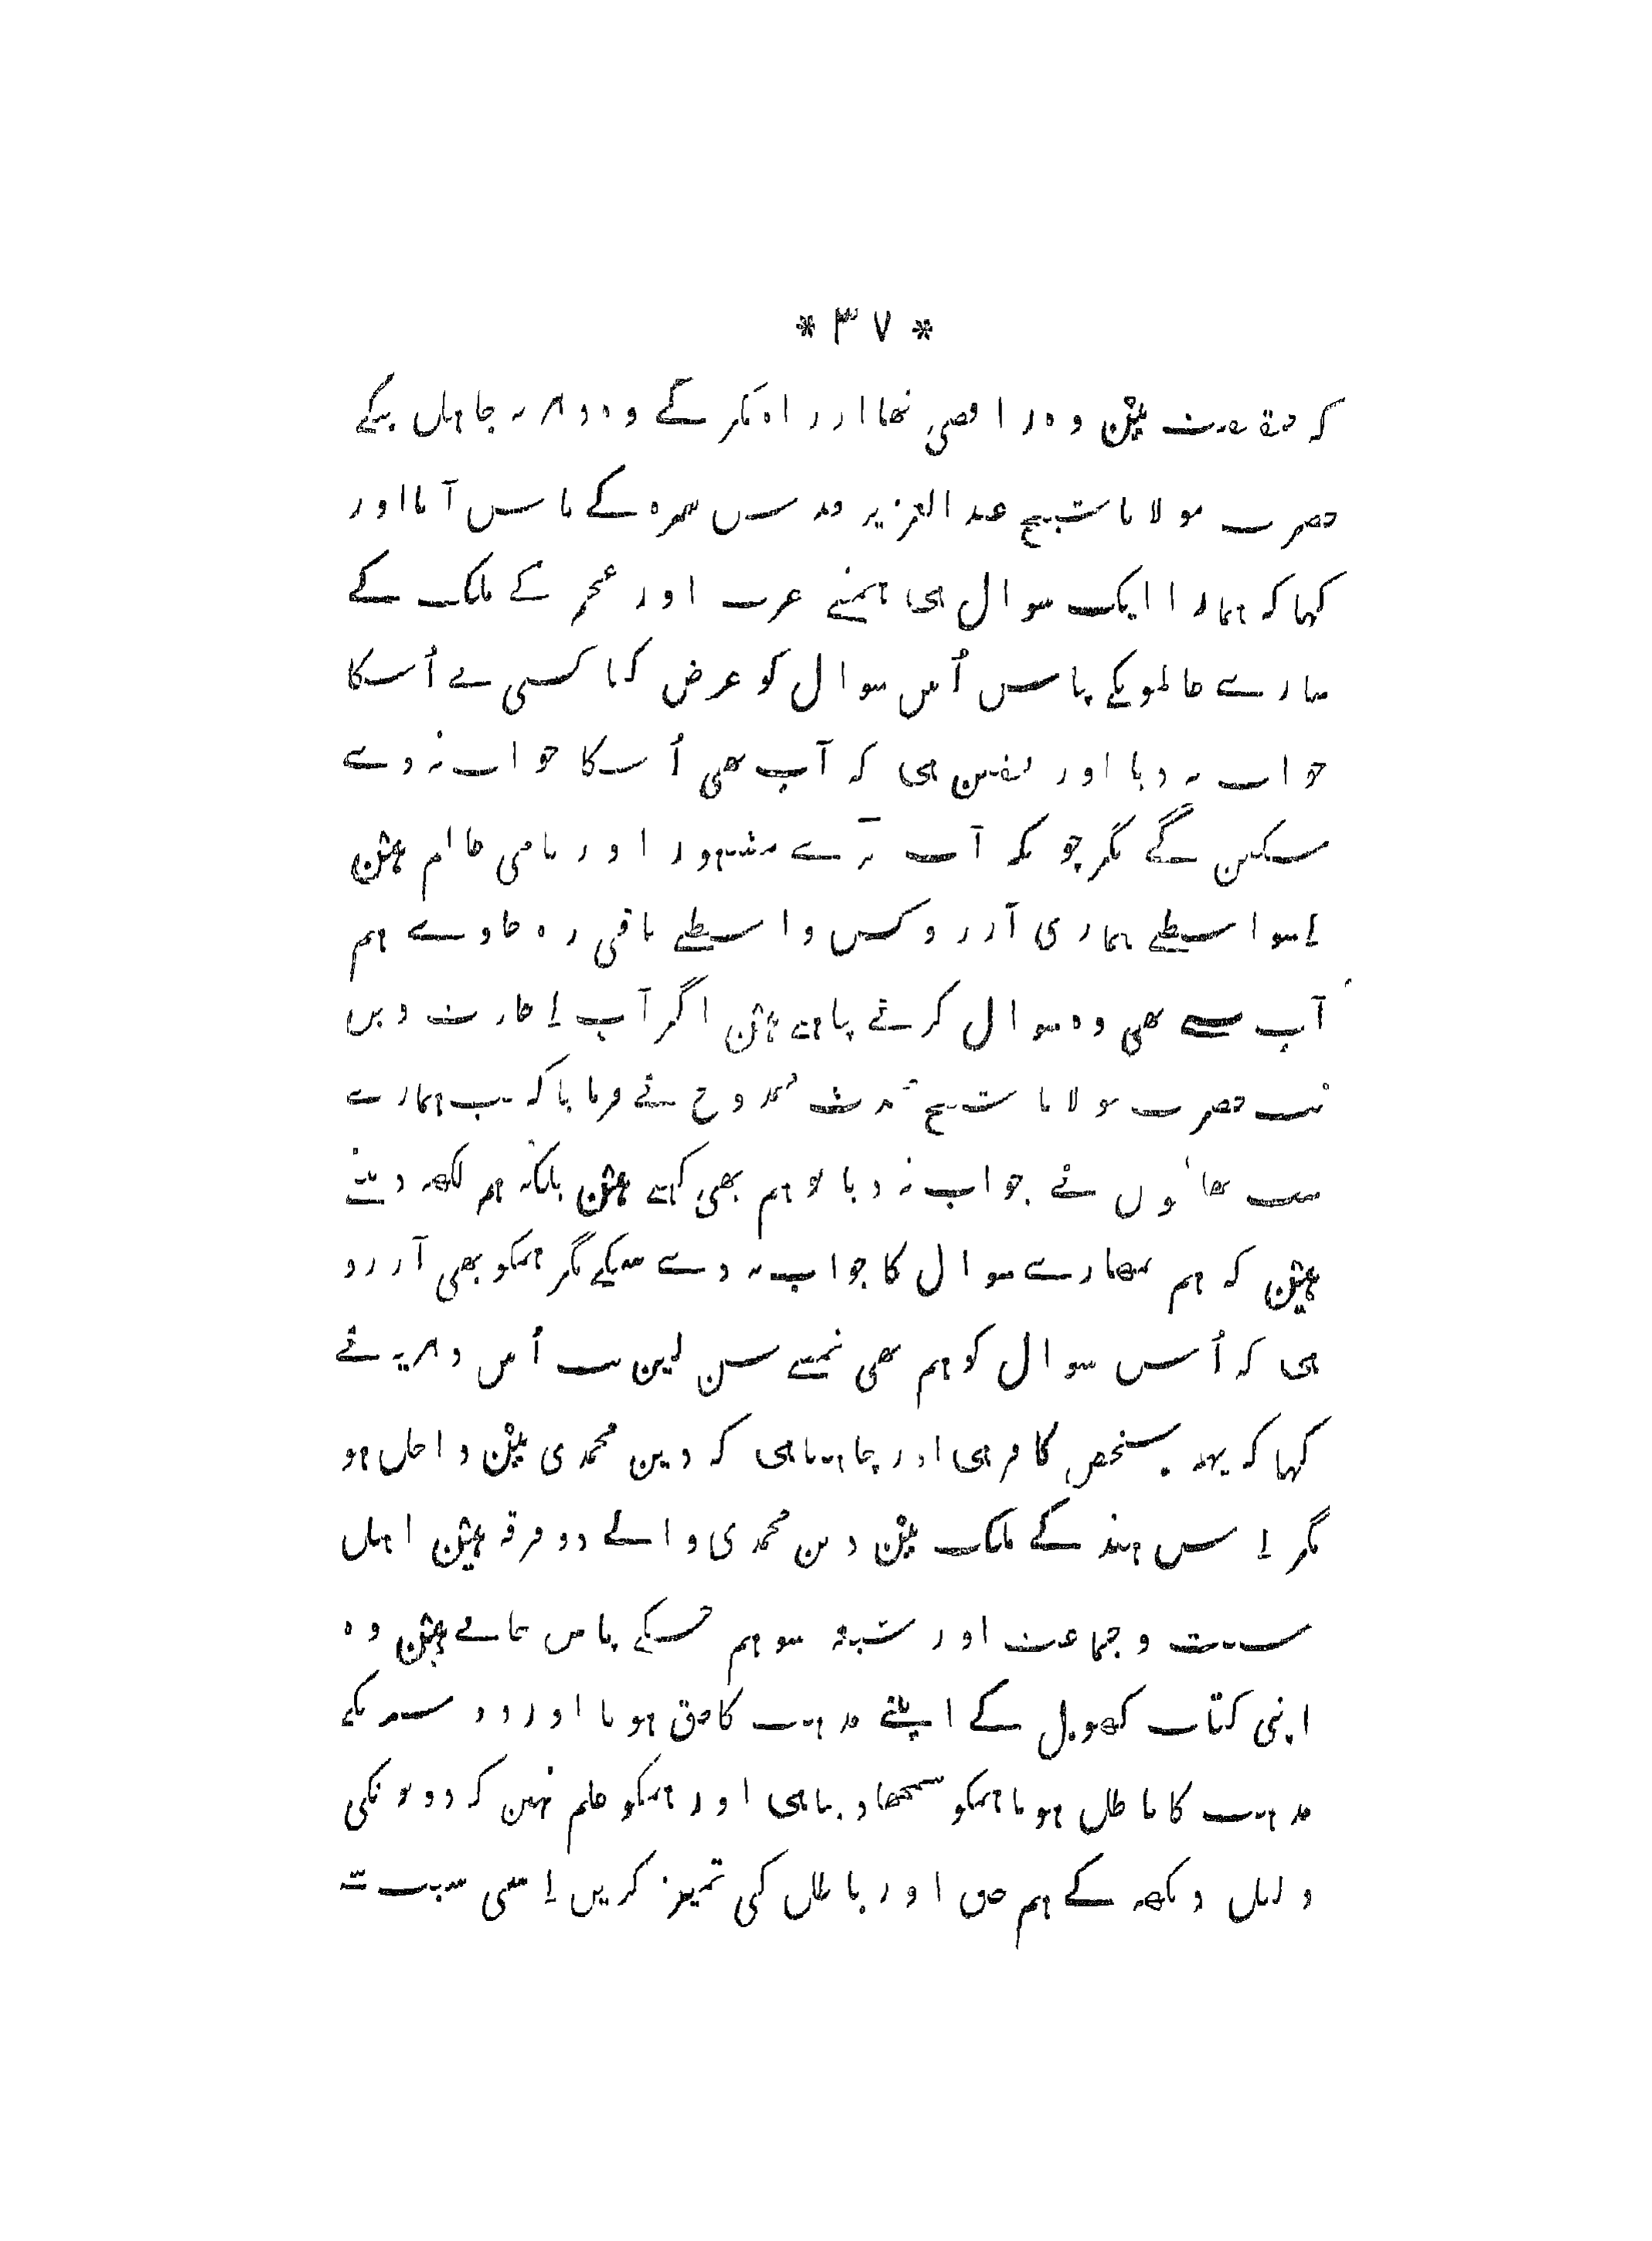 * ٣٧ *
کہ حقیقت مین وہ رافضی تھا اور راہ مکر کے وہ دہریہ جاہل بنکے
حضرت مولانا شیخ عبد العزیز قدس سرہ کے پاس آیا اور
کہا کہ ہمارا ایک سوال ہی ہمنے عرب اور عجم کے ملک کے
سارے عالمونکے پاس اُس سوال کو عرض کیا کسی نے اُسکا
جواب نہ دیا اور یقین ہی کہ آپ بھی اُسکا جواب نہ دے
سکین گے مگر چونکہ آپ بڑے مشہور اور نامی عالم ہین
اِسواسطے ہماری آرزو کس واسطے باقی رہ جاوے ہم
آپ سے بھی وہ سوال کرنے چاہتے ہین اگر آپ اِجازت دین
تب حضرت مولانا شیخ محدث ممدوح نے فرمایا کہ جب ہمارے
سب بھائیوں نے جواب نہ دیا تو ہم بھی کہتے ہین بلکہ ہم لکھہ دیتے
ہین کہ ہم تمھارے سوال کا جواب نہ دے سکینگے مگر ہمکو بھی آرزو
ہی کہ اُس سوال کو ہم بھی تمسے سن لین تب اُس دہریہ نے
کہا کہ یہہ شخص کافر ہی اور چاہتا ہی کہ دین محمدی مین داخل ہو
مگر اِس ہند کے ملک مین دین محمدی والے دو فرقہ ہین اہل
سنت و جماعت اور شیعہ سو ہم جسکے پاس جاتے ہین وہ
اپنی کتاب کھول کے اپنے مذہب کا حق ہونا اور دوسرےکے
مذہب کا باطل ہونا ہمکو سمجھا دیتا ہی اور ہمکو علم نہین کہ دونونکی
دلیل دیکھہ کے ہم حق اور باطل کی تمیز کرین اِسی سبب سے